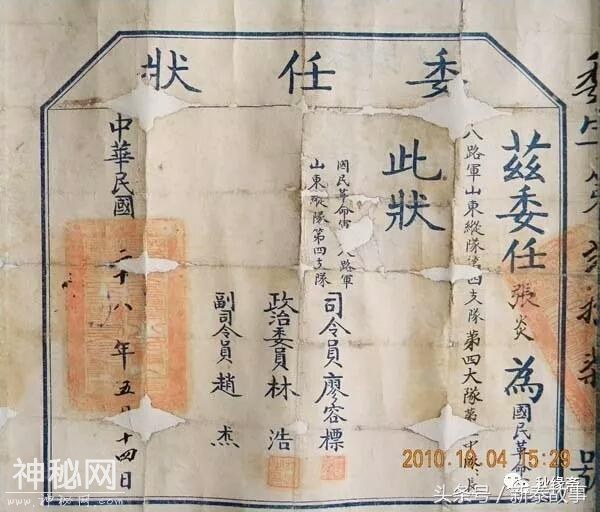 委任狀
茲委任張炎為國民革命
八路軍山東縱隊第四支隊第四大隊第 中隊長
此狀
國民革命 八路軍
山東縱隊第四支隊
司令員廖容標
政治委員林浩
副司令員趙杰
中華民國二十八年五月 十四日
號
2010.10.04 15:29
神秘网
www.
头条号/新泰故事